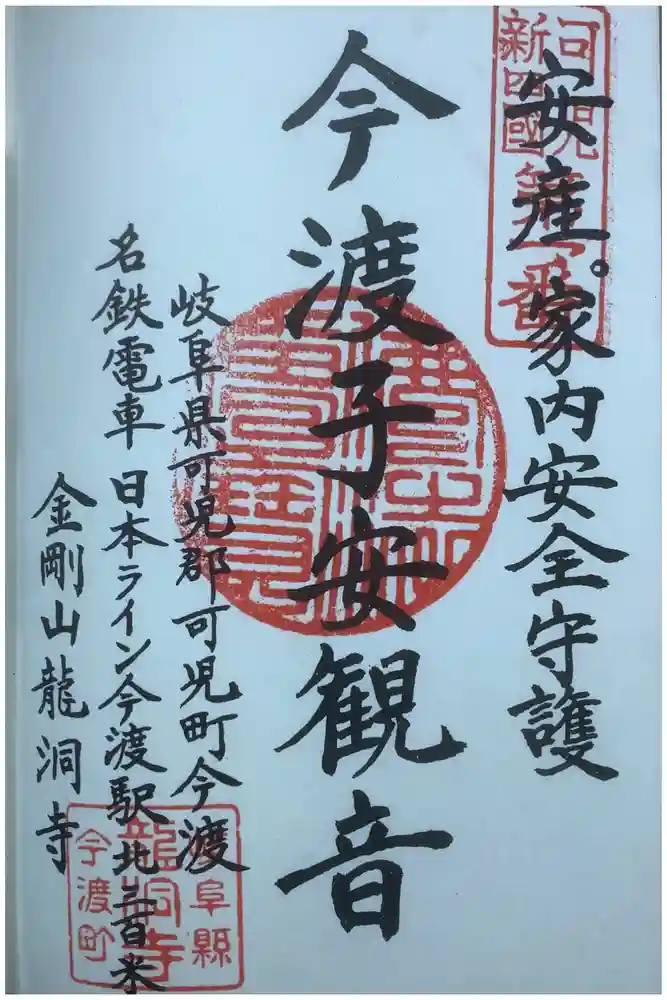 安産。家内安全守護
今渡子安観音
岐阜県可児郡可児町今渡
名鉄電車 日本ライン今渡駅北三百米
金剛山龍洞寺
可児
新四國
第一番
阜縣
龍洞寺
今渡町